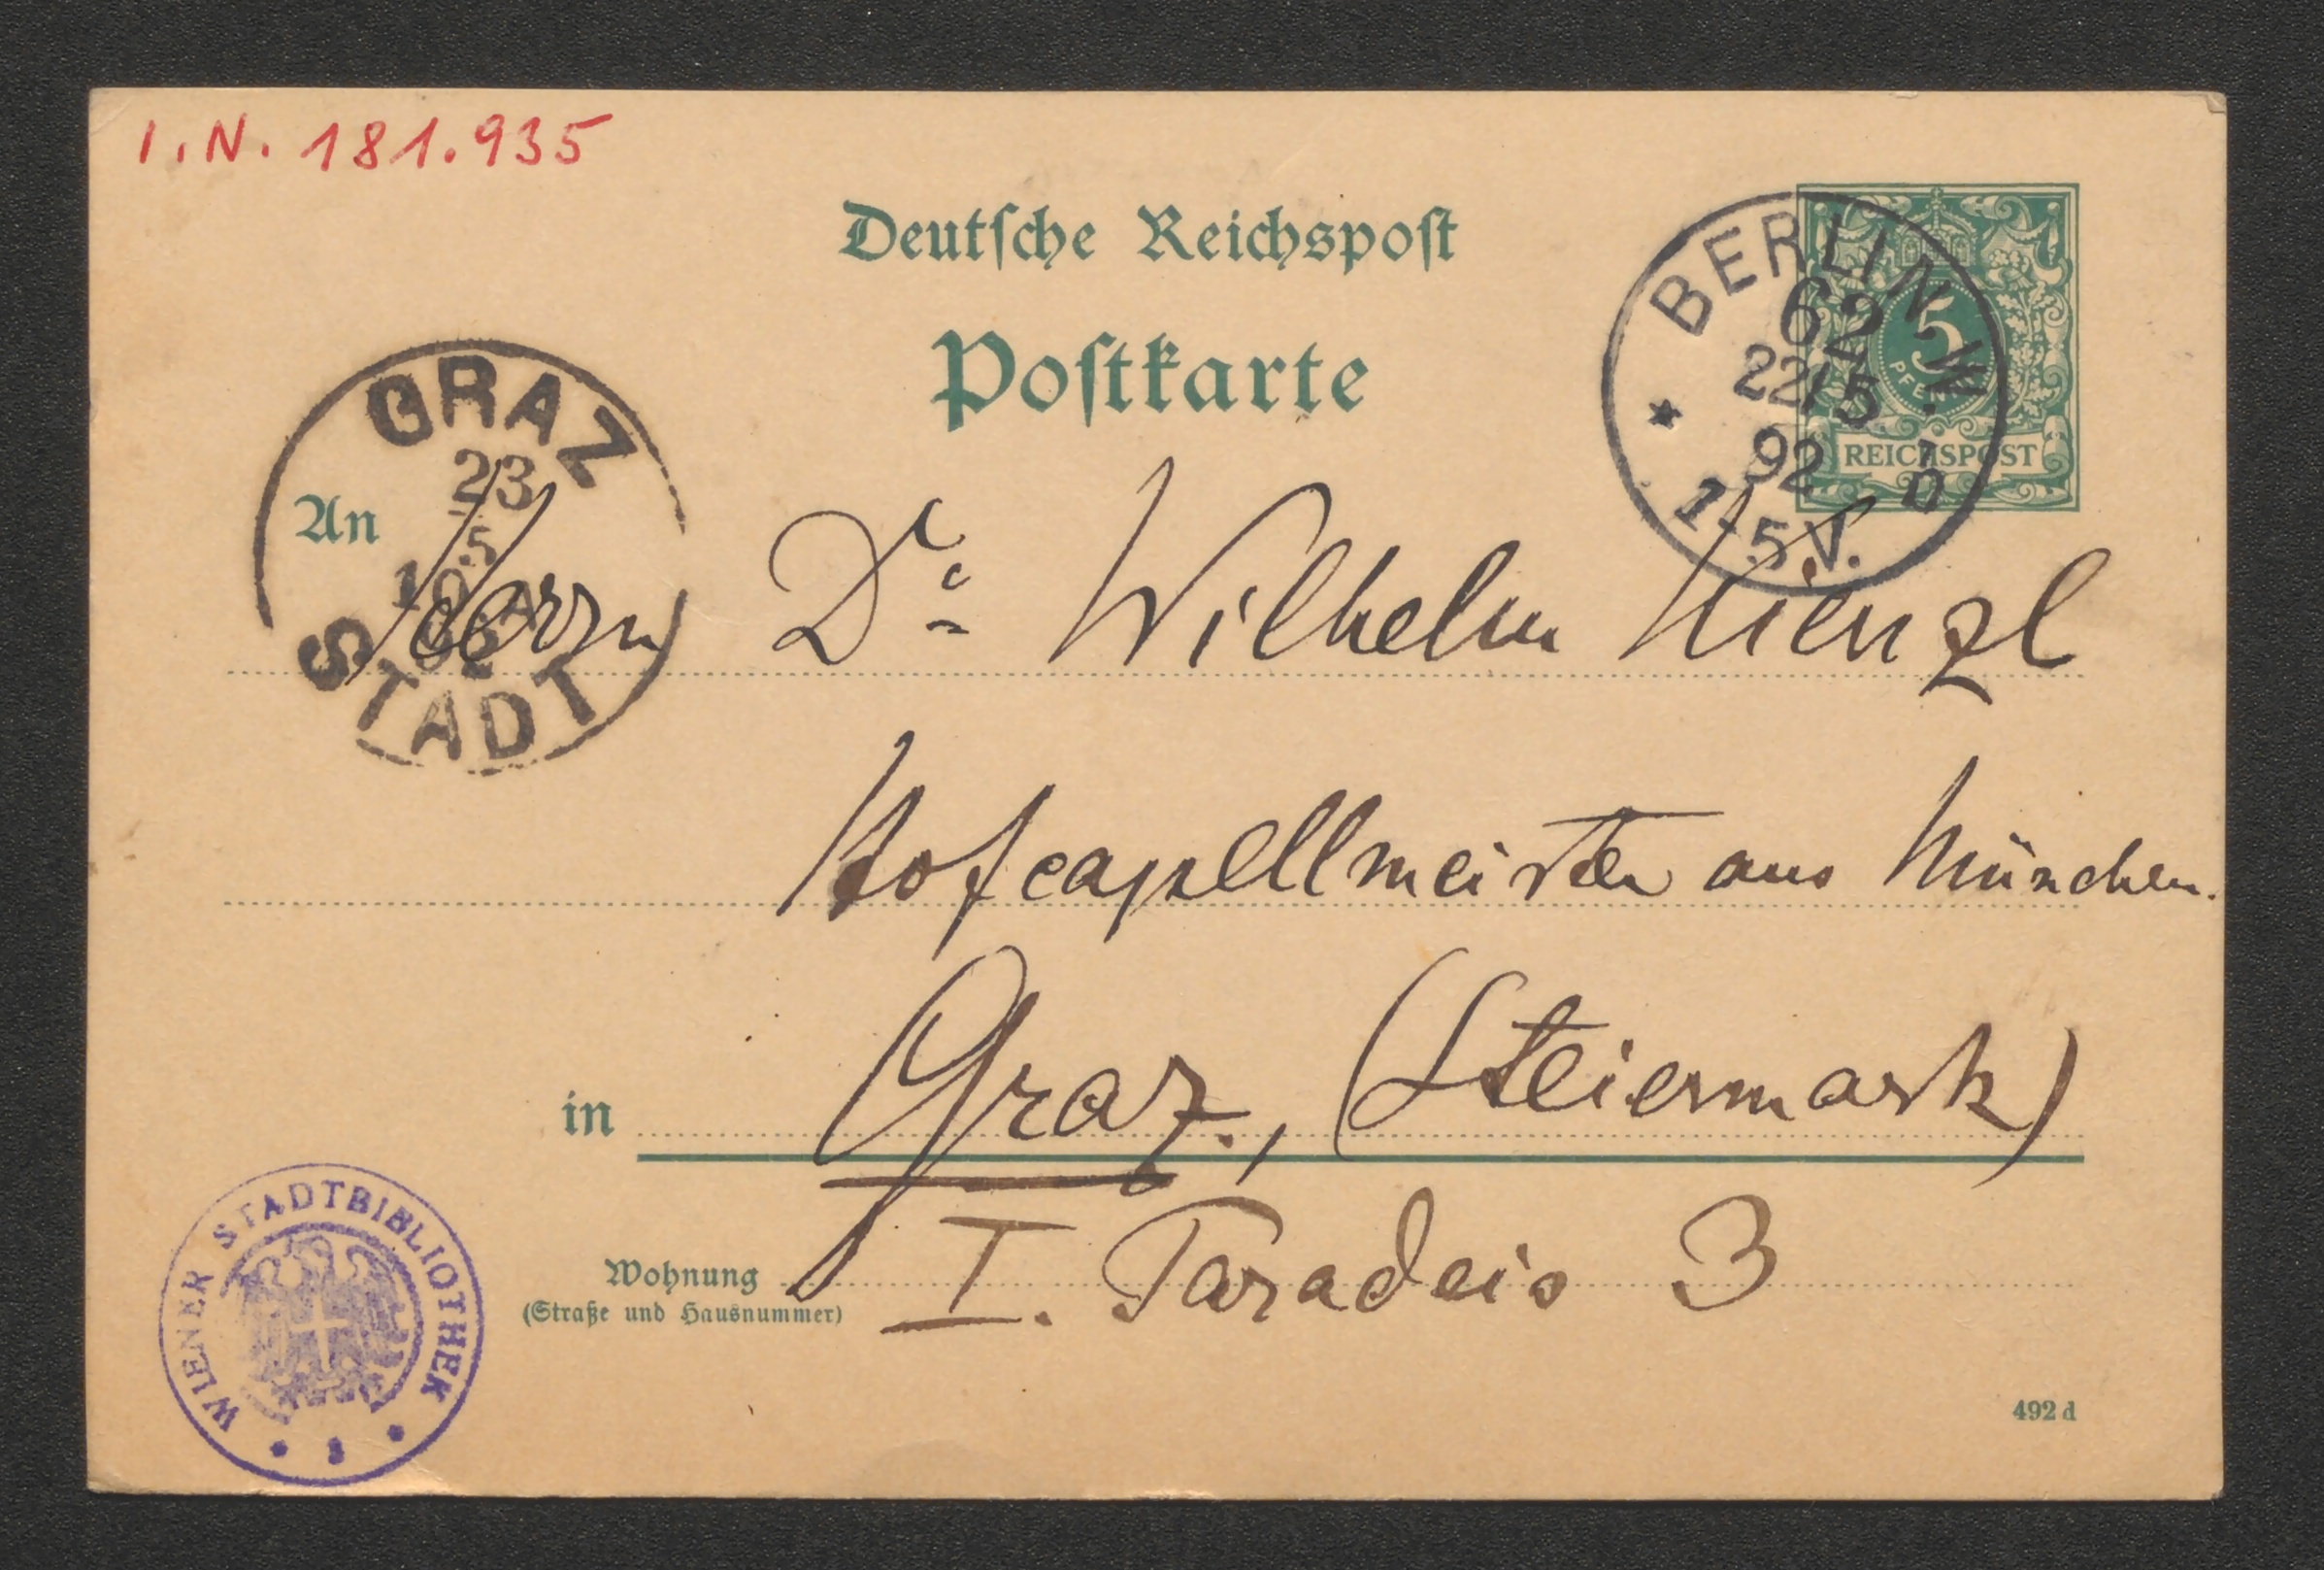 I.N. 181.935
Deutſche Reichspoſt
Poſtkarte
BERLIN W.
62
22/5
92
1-5V.
D
5
PF
REICHSPOST
GRAZ
23
5
10
92
STADT
An
Herrn Dr. Wilhelm Kienzl
Hofcapellmeister aus München.
in Graz, (Steiermark)
Wohnung I. Paradeis 3
(Straße und Hausnummer)
WIENER STADTBIBLIOTHEK
492 d